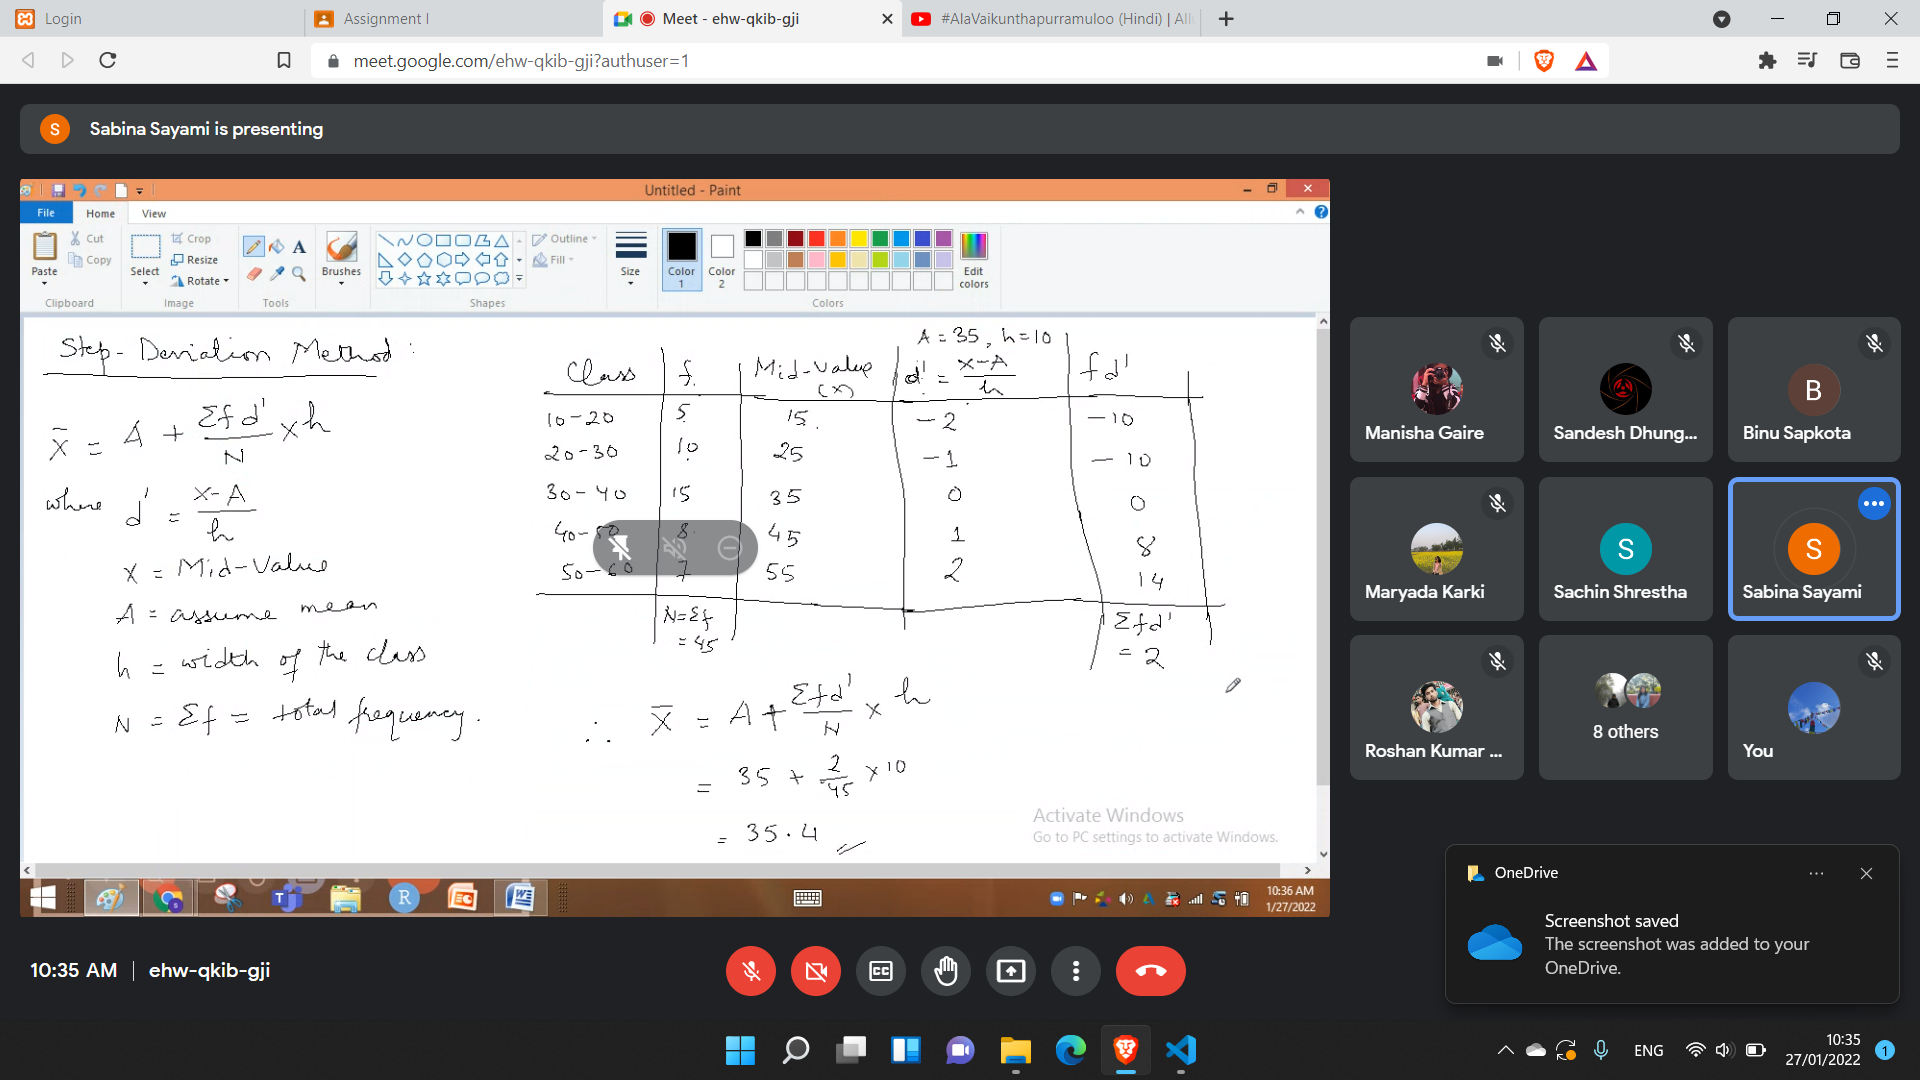 Login
Assignment I
Meet - ehw-qkib-gji
#AlaVaikunthapurramuloo (Hindi) | All
meet.google.com/ehw-qkib-gji?authuser=1
S
Sabina Sayami is presenting
Untitled - Paint
File Home View
Paste
Cut
Copy
Clipboard
Select
Crop
Resize
Rotate
Image
A
Tools
Brushes
Shapes
Outline
Fill
Size
Color 1
Color 2
Edit colors
Colors
Step-Deviation Method:
x̄ = A + Σfd'/N × h
where d' = x-A/h
x = Mid-Value
A = assume mean
h = width of the class
N = Σf = total frequency.
A = 35, h = 10
Class f. Mid-Value (x) d' = x-A/h fd'
10-20 5 15 -2 -10
20-30 10 25 -1 -10
30-40 15 35 0 0
40-50 8 45 1 8
50-60 7 55 2 14
N=Σf = 45 Σfd' = 2
∴ x̄ = A + Σfd'/N × h
= 35 + 2/45 × 10
= 35.4
Activate Windows
Go to PC settings to activate Windows.
10:36 AM
1/27/2022
Manisha Gaire
Sandesh Dhung...
B
Binu Sapkota
Maryada Karki
S
Sachin Shrestha
S
Sabina Sayami
Roshan Kumar ...
8 others
You
OneDrive
Screenshot saved
The screenshot was added to your
OneDrive.
10:35 AM | ehw-qkib-gji
ENG
10:35
27/01/2022
1